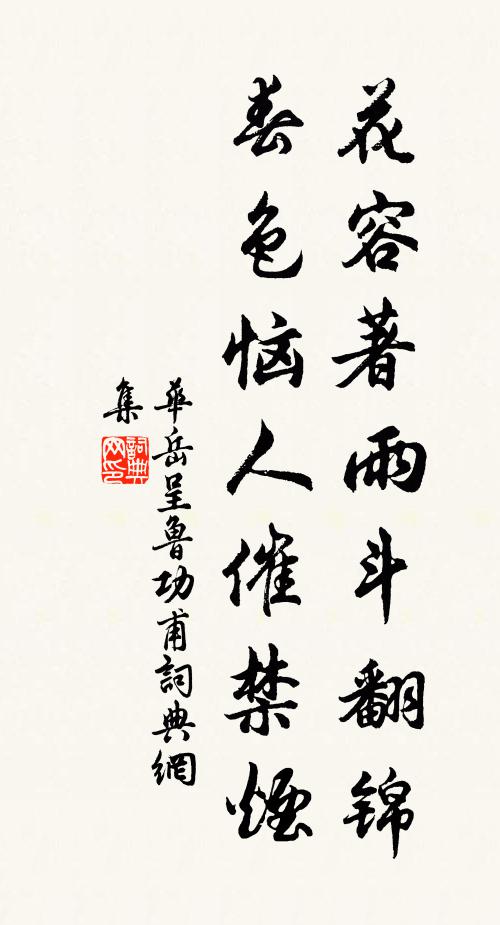 花容著雨斗翻锦
春色恼人催禁煙
華岳呈魯功甫詞典網
集
詞典
网印